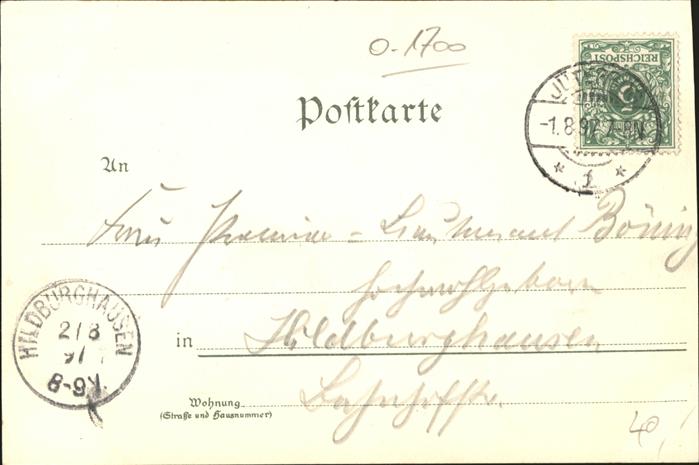 0-1700
REICHSPOST
5
JÜTERBOG
-1.8.97. 7-8N.
* 1 *
Postkarte
An
Frau Premier-Lieutenant Bönig
Hochwohlgeboren
HILDBURGHAUSEN
2/8
97
8-9V.
in Hildburghausen
Wohnung
(Straße und Hausnummer)
Bahnhofstr.
40,